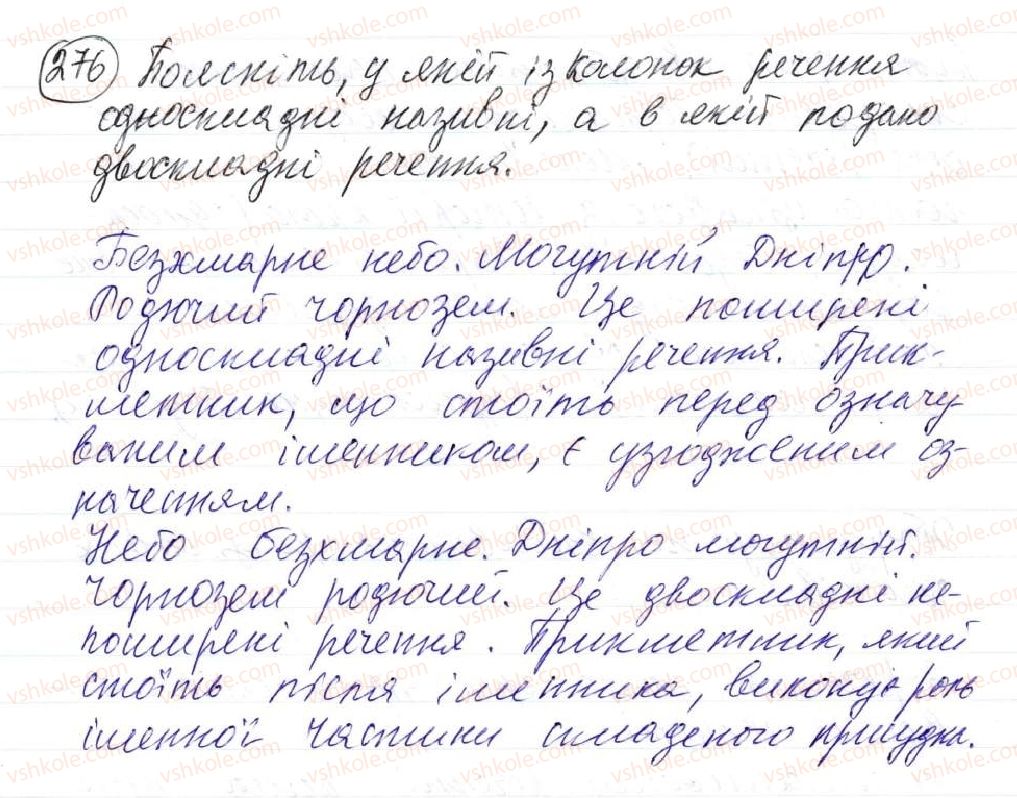 276 Поясніть, у якій із колонок речення
односкладні називні, а в якій подано
двоскладні речення.
Безхмарне небо. Могутній Дніпро.
Родючий чорнозем. Це поширені
односкладні називні речення. Прик-
метник, що стоїть перед означу-
ваним іменником, є узгодженим оз-
наченням.
Небо безхмарне. Дніпро могутній.
Чорнозем родючий. Це двоскладні не-
поширені речення. Прикметник, який
стоїть після іменника, виконує роль
іменної частини складеного присудка.
vshkole.com